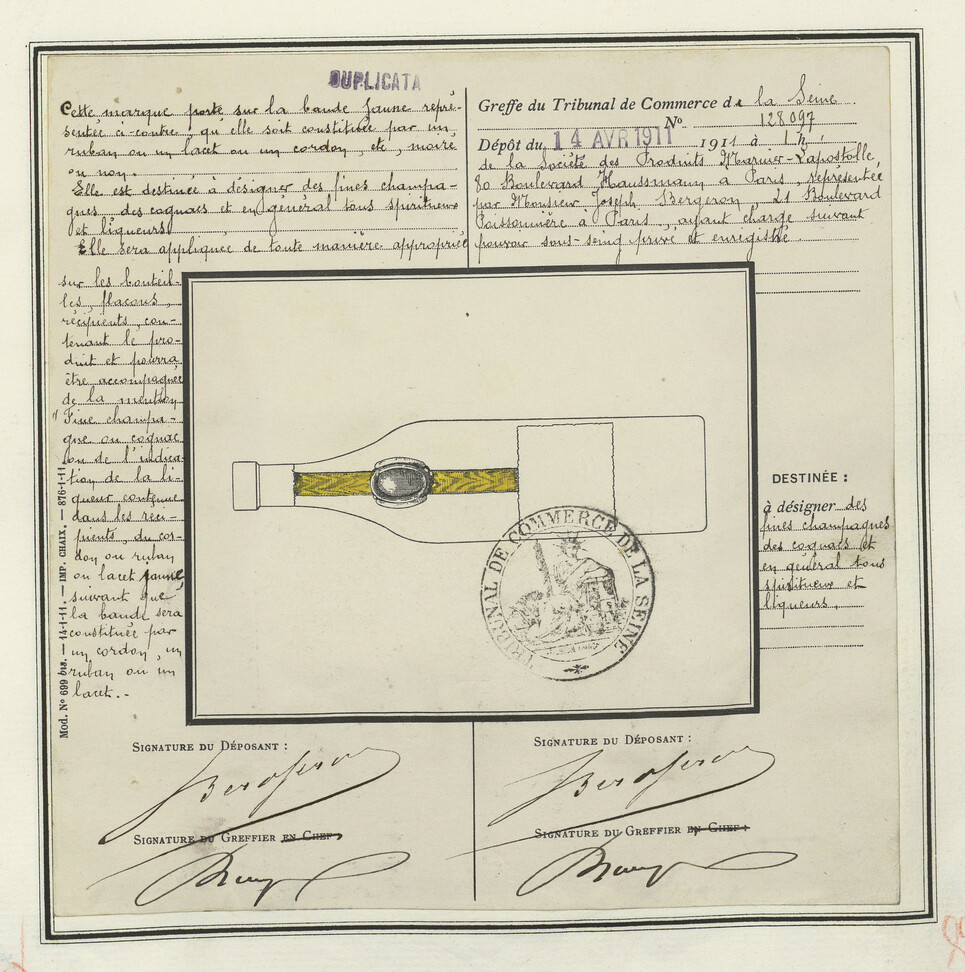 DUPLICATA
Cette marque porte sur la bande jaune repré-
sentée ci-contre, qu'elle soit constituée par un
ruban ou un lacet ou un cordon, etc, moiré
ou non.
Elle est destinée à désigner des fines champa-
gnes, des cognacs et en général tous spiritueux
et liqueurs.
Elle sera appliquée de toute manière appropriée
sur les bouteil-
les, flacons,
récipients, con-
tenant le pro-
duit et pourra
être accompagnée
de la mention
"Fine champa-
gne ou cognac
ou de l'indica-
tion de la li-
queur contenue
dans les réci-
pients, du cor-
don ou ruban
ou lacet jaune,
suivant que
la bande sera
constituée par
un cordon, un
ruban ou un
lacet.-
Mod. N° 699 bis. — 14-1-11. — IMP. CHAIX. — 876-1-11
Greffe du Tribunal de Commerce de la Seine
N° 128097
Dépôt du 14 AVR 1911 1911 à 1h
de la Société des Produits Marnier-Lapostolle,
80 Boulevard Haussmann à Paris, représentée
par Monsieur Joseph Bergeron, 21 Boulevard
Poissonnière à Paris, ayant charge suivant
pouvoir sous-seing privé et enregistré.
TRIBUNAL DE COMMERCE DE LA SEINE
DESTINÉE :
à désigner des
fines champagnes
des cognacs et
en général tous
spiritueux et
liqueurs.
SIGNATURE DU DÉPOSANT :
Bergeron
SIGNATURE DU GREFFIER EN CHEF :
SIGNATURE DU DÉPOSANT :
Bergeron
SIGNATURE DU GREFFIER EN CHEF :